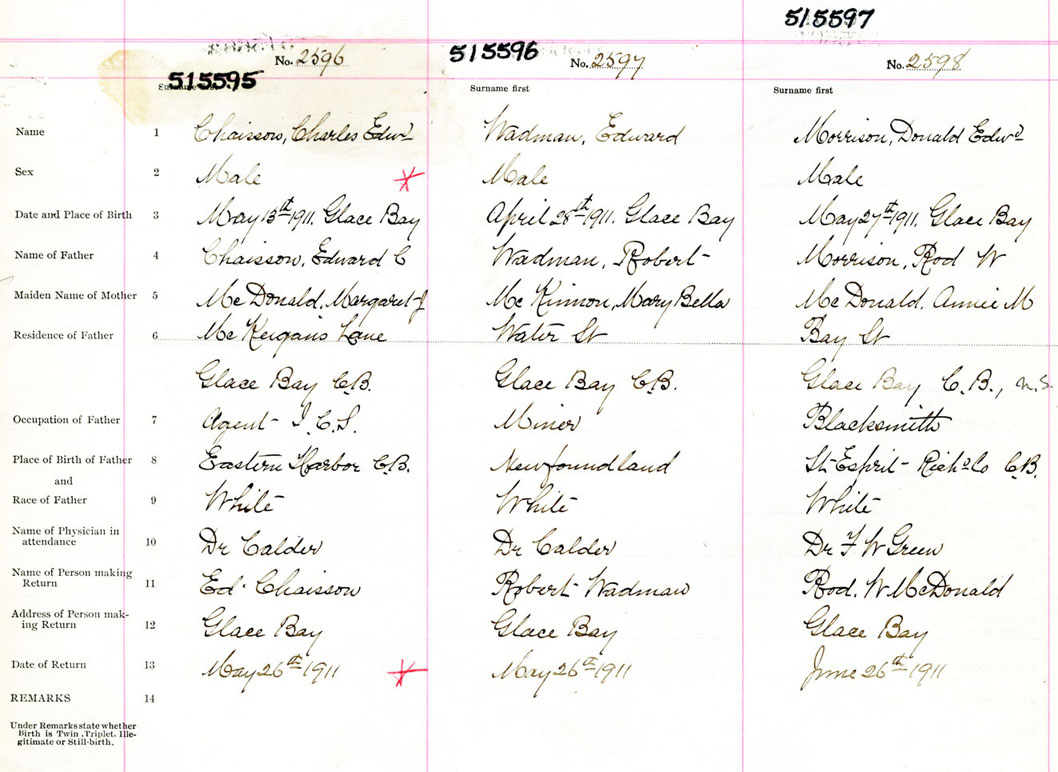 515597
515596
515595
No. 2596
No. 2597
No. 2598
Surname first
Surname first
Surname first
Name 1 Chaisson, Charles Edwd Wadman, Edward Morrison, Donald Edwd
Sex 2 Male Male Male
Date and Place of Birth 3 May 13th 1911. Glace Bay April 28th 1911. Glace Bay May 27th 1911. Glace Bay
Name of Father 4 Chaisson, Edward C Wadman, Robert Morrison, Rod W
Maiden Name of Mother 5 McDonald, Margaret J McKinnon, Mary Bella McDonald. Annie M
Residence of Father 6 McKeigans Lane Water St Bay St
Glace Bay C.B. Glace Bay C.B. Glace Bay C.B., N.S.
Occupation of Father 7 Agent I.C.S. Miner Blacksmith
Place of Birth of Father 8 Eastern Harbor C.B. Newfoundland St Esprit Richd Co C.B.
and
Race of Father 9 White White White
Name of Physician in
attendance 10 Dr Calder Dr Calder Dr F W Green
Name of Person making
Return 11 Ed. Chaisson Robert Wadman Rod. W McDonald
Address of Person mak-
ing Return 12 Glace Bay Glace Bay Glace Bay
Date of Return 13 May 26th 1911 May 26th 1911 June 26th 1911
REMARKS 14
Under Remarks state whether
Birth is Twin, Triplet, Ille-
gitimate or Still-birth.